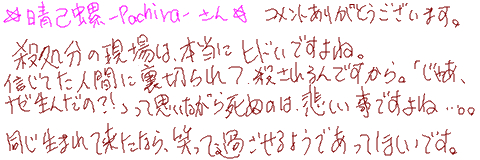 ☆晴己螺-Pochira-さん☆ コメントありがとうございます。
殺処分の現場は、本当にヒドいですよね。
信じてた人間に裏切られて、殺されるんですから。「じゃあ、
ナゼ生んだの?!」って思いながら死ぬのは、悲しい事ですよね…。。
同じ生まれて来たなら、笑って過ごせるようであってほしいです。